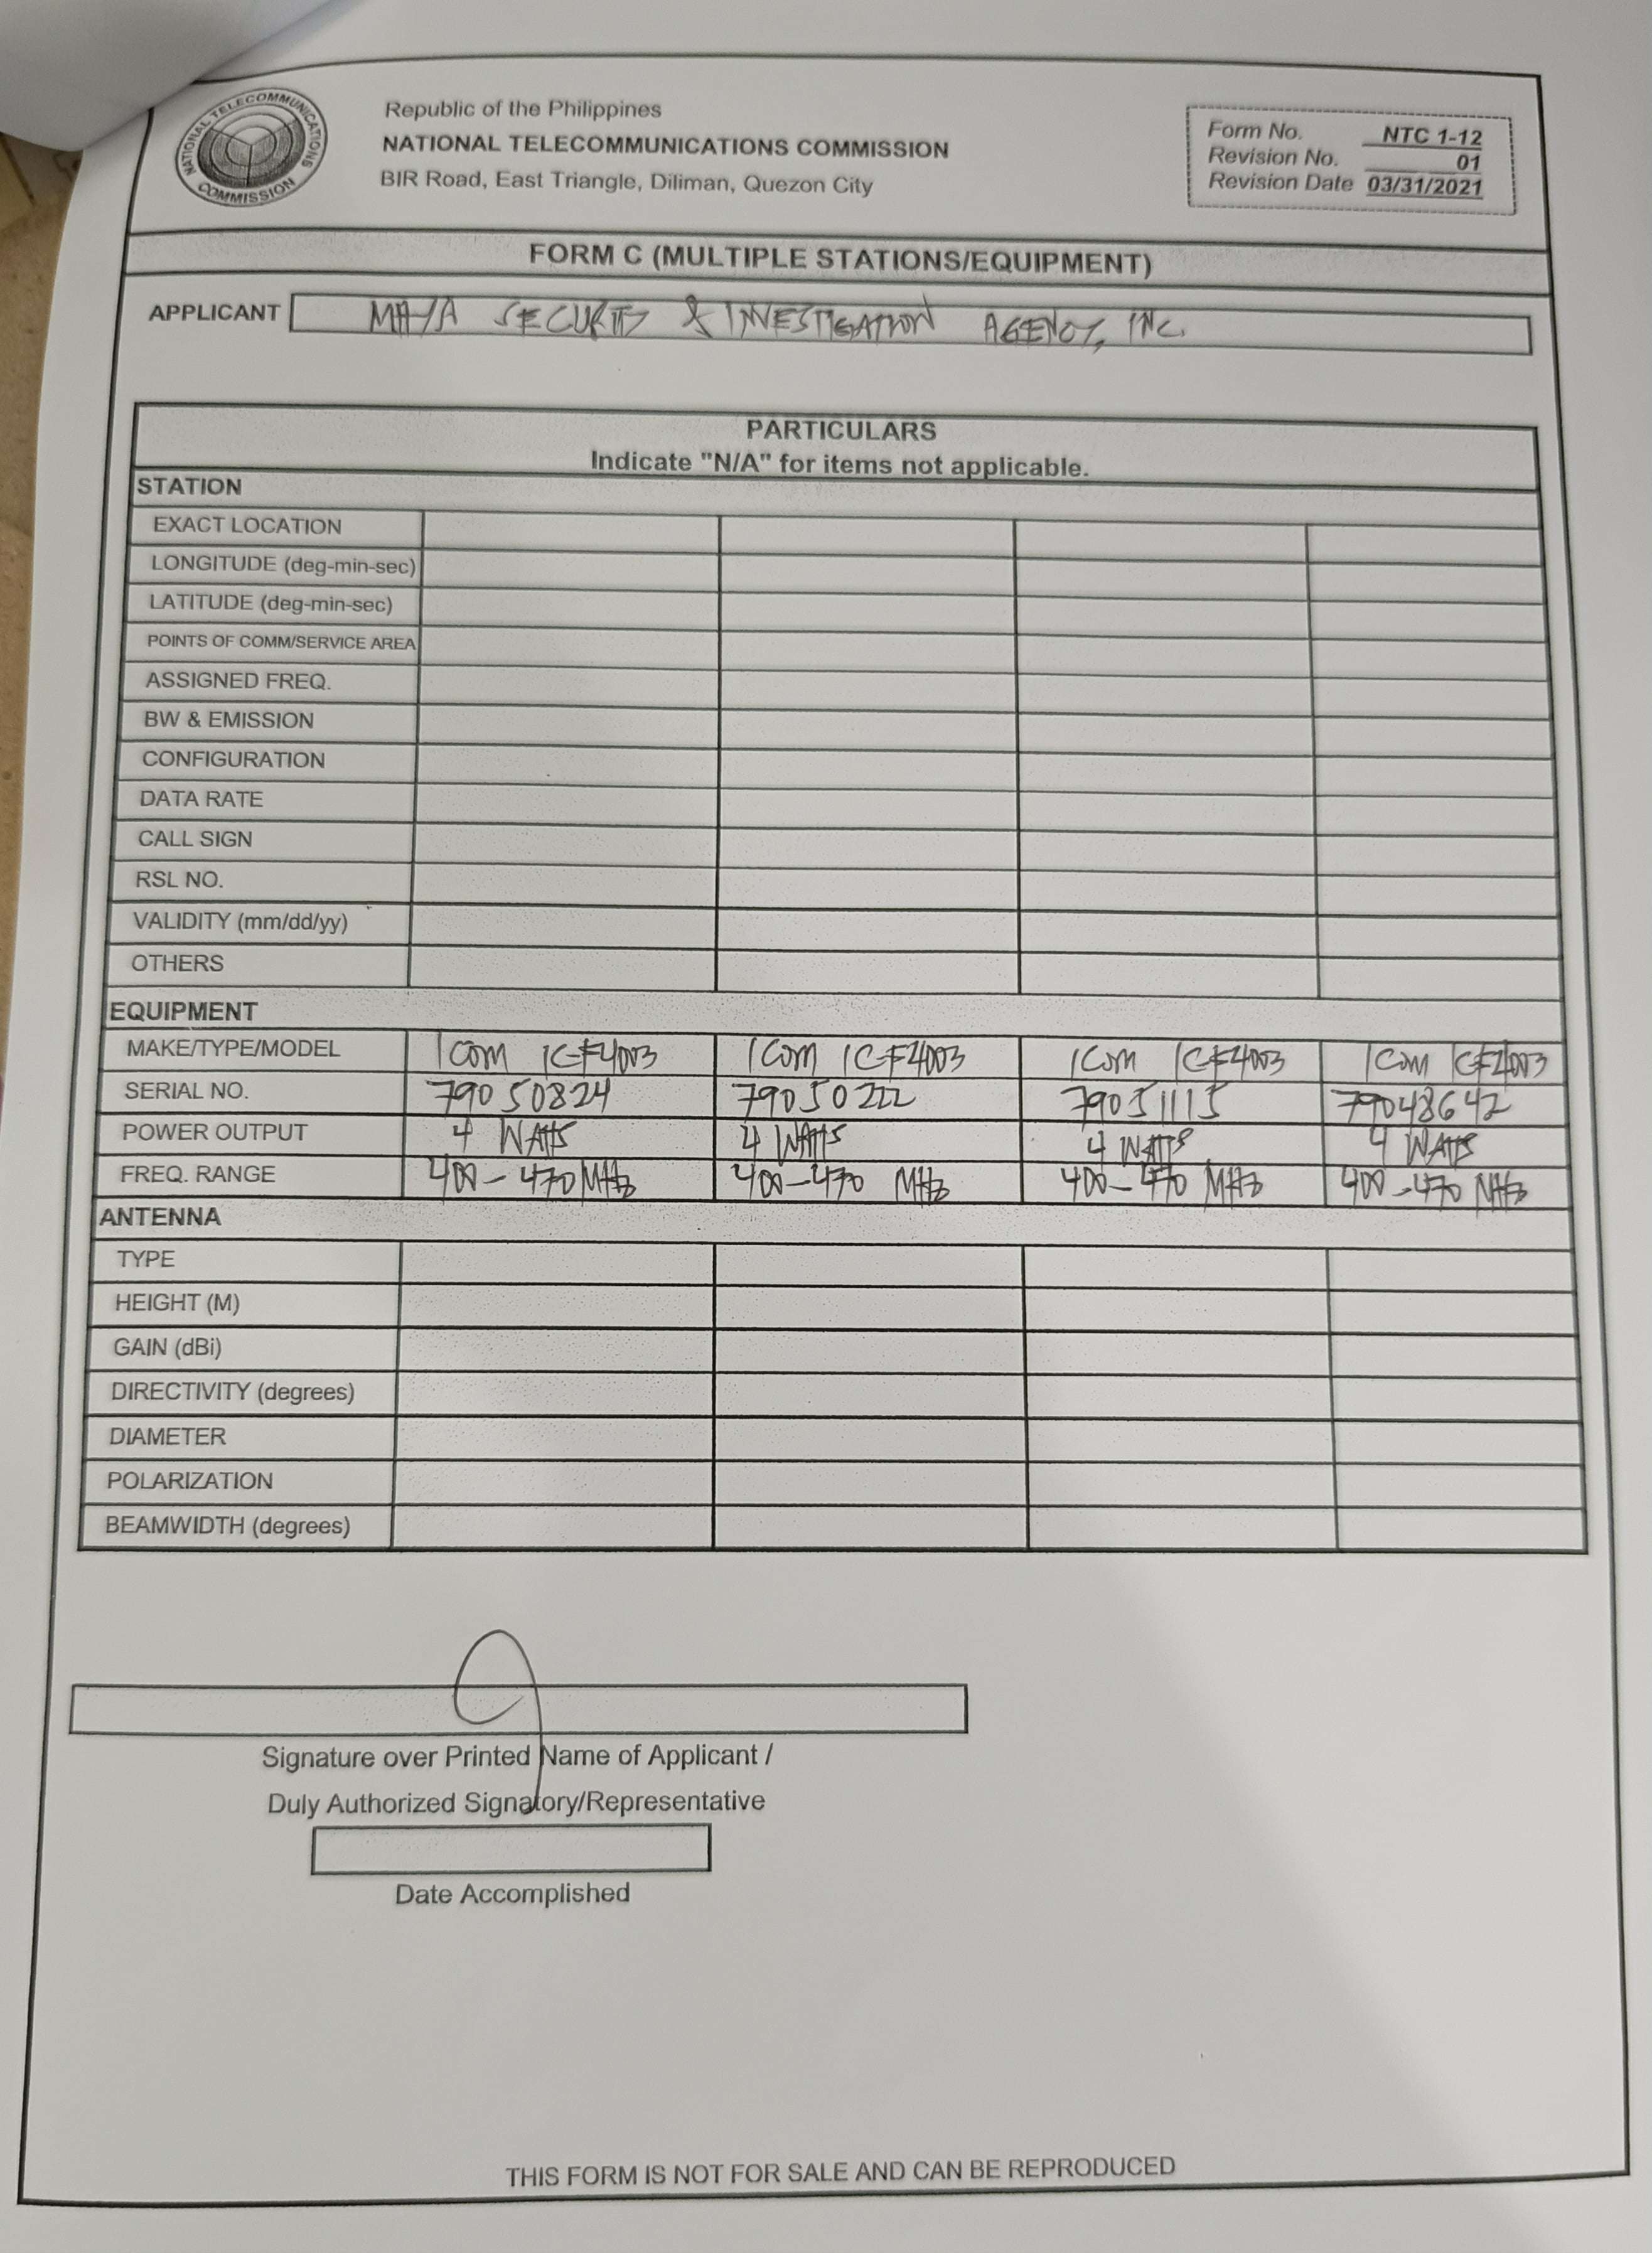 NATIONAL TELECOMMUNICATIONS COMMISSION
Republic of the Philippines
NATIONAL TELECOMMUNICATIONS COMMISSION
BIR Road, East Triangle, Diliman, Quezon City
Form No. NTC 1-12
Revision No. 01
Revision Date 03/31/2021
FORM C (MULTIPLE STATIONS/EQUIPMENT)
APPLICANT SECURITY & INVESTIGATION AGENCY, INC.
PARTICULARS
Indicate "N/A" for items not applicable.
STATION
EXACT LOCATION
LONGITUDE (deg-min-sec)
LATITUDE (deg-min-sec)
POINTS OF COMM/SERVICE AREA
ASSIGNED FREQ.
BW & EMISSION
CONFIGURATION
DATA RATE
CALL SIGN
RSL NO.
VALIDITY (mm/dd/yy)
OTHERS
EQUIPMENT
MAKE/TYPE/MODEL ICOM IC-F4003 ICOM IC-F4003 ICOM IC-F4003 ICOM IC-F4003
SERIAL NO. 79050824 79050222 79051115 79048642
POWER OUTPUT 4 WATTS 4 WATTS 4 WATTS 4 WATTS
FREQ. RANGE 400-470 MHz 400-470 MHz 400-470 MHz 400-470 MHz
ANTENNA
TYPE
HEIGHT (M)
GAIN (dBi)
DIRECTIVITY (degrees)
DIAMETER
POLARIZATION
BEAMWIDTH (degrees)
Signature over Printed Name of Applicant /
Duly Authorized Signatory/Representative
Date Accomplished
THIS FORM IS NOT FOR SALE AND CAN BE REPRODUCED